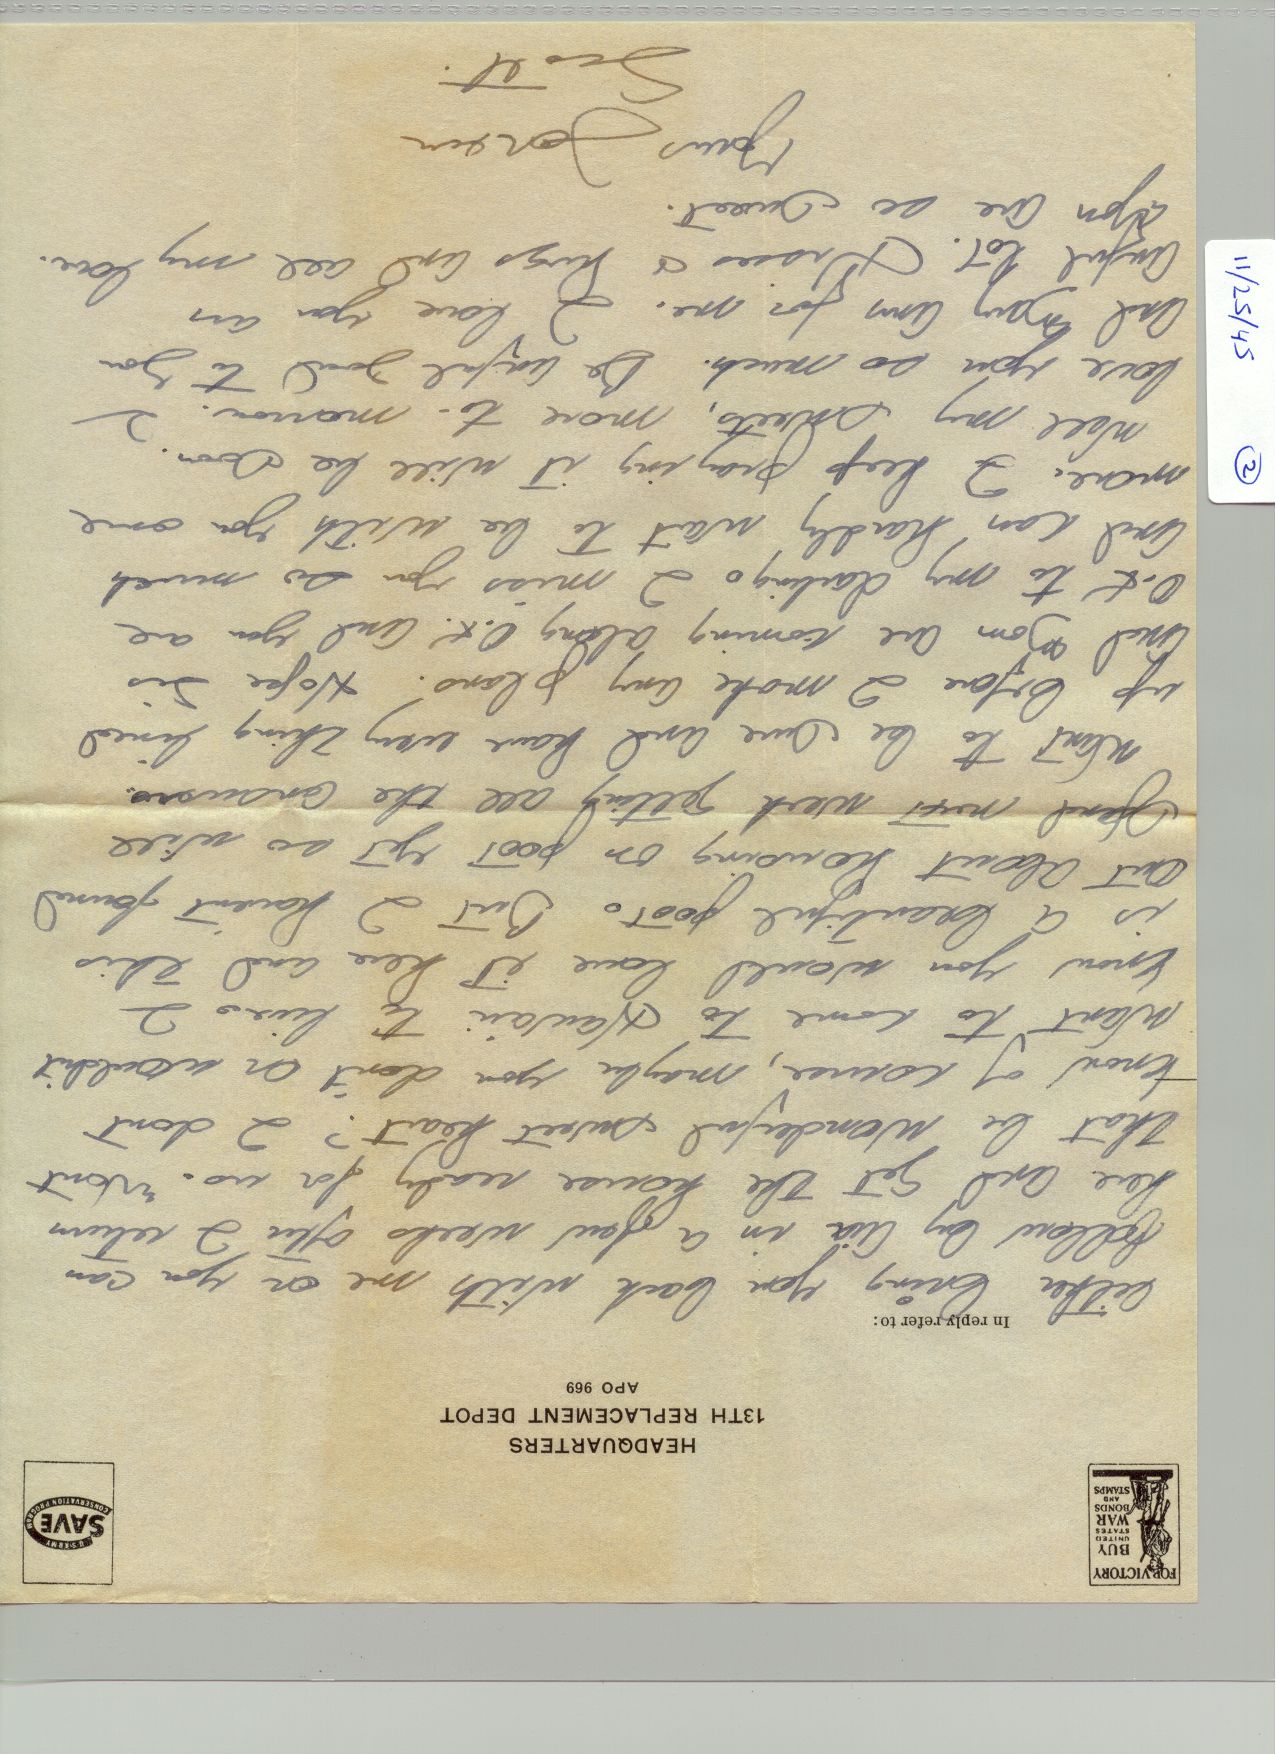 FOR VICTORY
BUY
UNITED
STATES
WAR
BONDS
AND
STAMPS
U·S·ARMY
SAVE
CONSERVATION PROGRAM
HEADQUARTERS
13TH REPLACEMENT DEPOT
APO 969
In reply refer to:
either bring you back with me or you can
follow by air in a few weeks after I return
here and get the house ready for us. Won't
that be wonderful sweet heart? I don't
know of course, maybe you don't or wouldn't
want to come to Hawaii to live. I
know you would love it here and this
is a beautiful post. But I haven't found
out about housing on post yet so will
spend next week getting all the answers.
Want to be sure and have every thing lined
up before I make any plans. Hope Sis
and Tom are coming along O.K. and you are
O.K. to my darling. I miss you so much
and can hardly wait to be with you once
more. I keep praying it will be soon.
Well my sweets, more to-morrow. I
love you so much. Be awful good to you
and my Ann for me. I love you an
awful lot. Kisses & hugs and all my love.
You are so sweet.
Yours Forever
Scott.
11/25/45
2